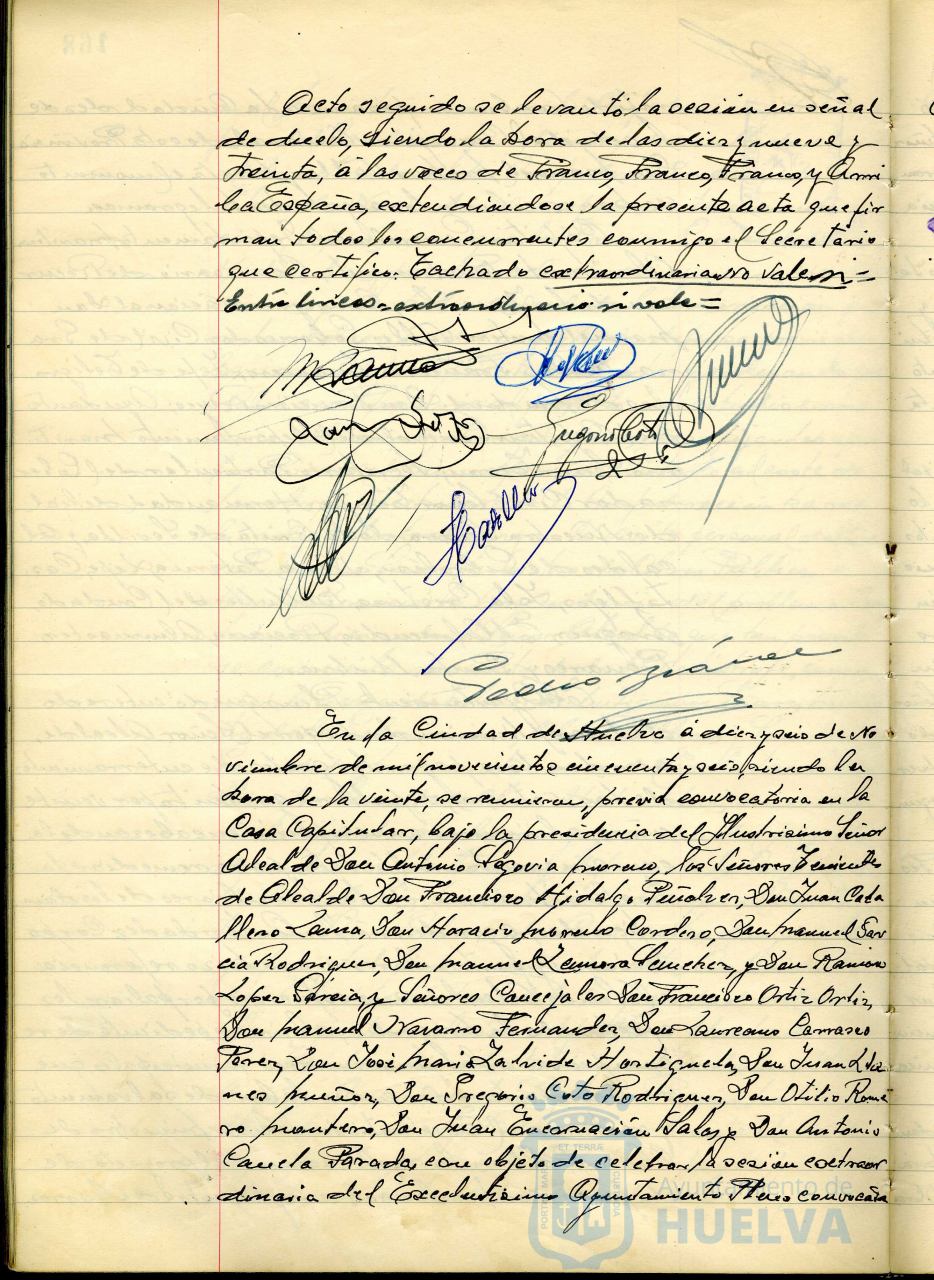 Acto seguido se levantó la sesión en señal
de duelo, siendo la hora de las diez y nueve y
treinta, á las voces de Franco, Franco, Franco, y Arri
ba España, extendiendose la presente acta que fir
man todos los concurrentes conmigo el Secretario
que certifico. Tachado extraordinaria no vale
Entre lineas = extraordinario si vale =
Gregorio Coto
Pedro
En la Ciudad de Huelva á diez y seis de No
viembre de mil novecientos cincuenta y seis, siendo la
hora de la veinte, se reunieron, previa convocatoria en la
Casa Capitular, bajo la presidencia del Ilustrisimo Señor
Alcalde Don Antonio Segovia Moreno, los Señores Tenientes
de Alcalde Don Francisco Hidalgo Peñalver, Don Juan Caba
llero Launa, Don Horacio Moreno Cordero, Don Manuel Gar
cia Rodriguez, Don Manuel Zamora Sanchez, y Don Ramon
Lopez Garcia, y Señores Concejales Don Francisco Ortiz Ortiz,
Don Manuel Navarro Fernandez, Don Laureano Carrasco
Perez, Don José Maria Zalvide Hortiguela, Don Juan
Muñoz, Don Gregorio Coto Rodriguez, Don Otilio Rome
ro Mantero, Don Juan Encarnación Salas y Don Antonio
Canela Parada, con objeto de celebrar la sesión extraor
dinaria del Excelentisimo Ayuntamiento Pleno convocada
Ayuntamiento de
HUELVA